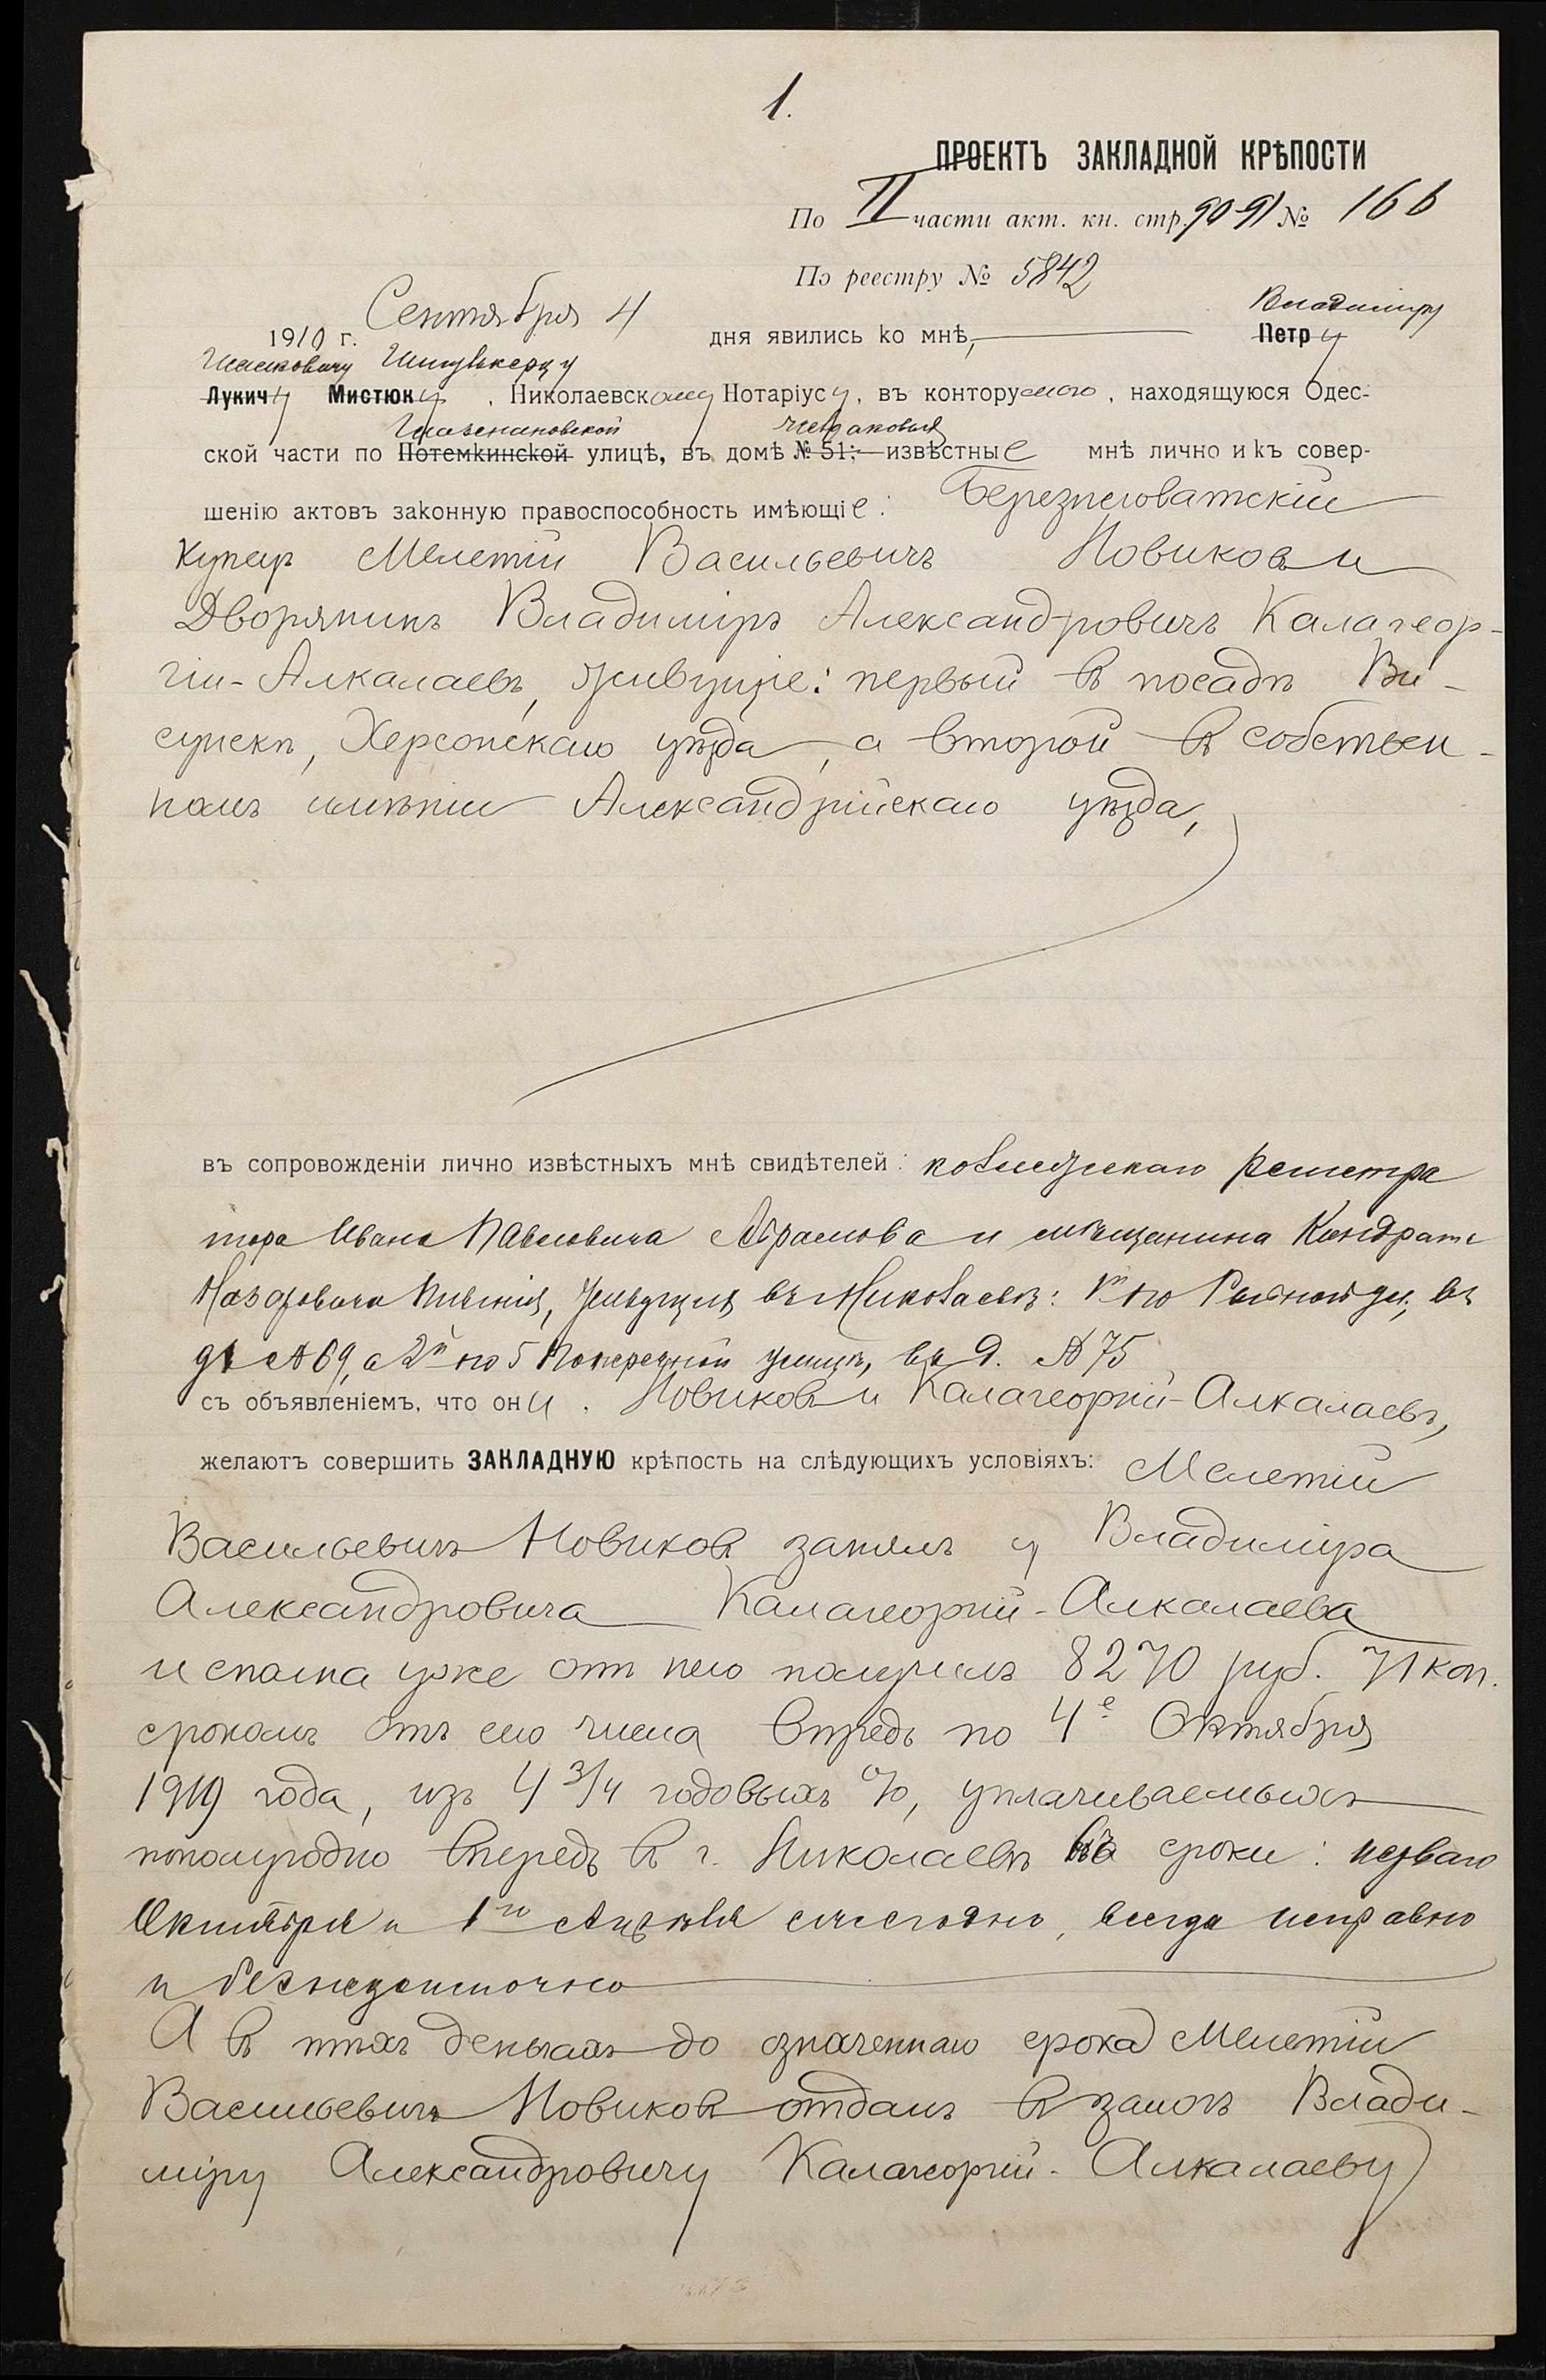 1.
ПРОЕКТЪ ЗАКЛАДНОЙ КРѢПОСТИ
По II части акт. кн. стр. 90-91 № 166
По реестру № 5842
1910 г. Сентября 4 дня явились ко мнѣ, Владиміру Петру
Исааковичу
Лукичу Мистюку, Николаевскому Нотаріусу, въ контору мою, находящуюся Одес-
ской части по Потемкинской улицѣ, въ домѣ № 51; извѣстные мнѣ лично и къ совер-
шенію актовъ законную правоспособность имѣющіе: Березнеговатскій
купецъ Мелетій Васильевичъ Новиковъ и
Дворянинъ Владиміръ Александровичъ Калагеор-
гій-Алкалаевъ, живущіе: первый въ посадѣ Ви-
сунскѣ, Херсонскаго уѣзда, а второй въ собствен-
номъ имѣніи Александрійскаго уѣзда,
въ сопровожденіи лично извѣстныхъ мнѣ свидѣтелей: коллежскаго регистра
тора Ивана Павловича Абрамова и мѣщанина Кондрата
Назаровича живущихъ въ Николаевѣ: 1й по Рыбной ул., въ
д. № 69, а 2й по 5 Поперечной улицѣ, въ д. № 75
съ объявленіемъ, что они, Новиковъ и Калагеоргій-Алкалаевъ,
желаютъ совершить ЗАКЛАДНУЮ крѣпость на слѣдующихъ условіяхъ: Мелетій
Васильевичъ Новиковъ занялъ у Владиміра
Александровича Калагеоргій-Алкалаева
и сполна уже отъ него получилъ 8270 руб. 71 коп.
срокомъ отъ сего числа впредь по 4е Октября
1919 года, изъ 4 3/4 годовыхъ %, уплачиваемыхъ
пополугодно впередъ въ г. Николаевѣ въ сроки: перваго
Октября и 1го Апрѣля ежегодно, всегда исправно
и бездоимочно
А въ тѣхъ деньгахъ до означеннаго срока Мелетій
Васильевичъ Новиковъ отдалъ въ залогъ Влади-
міру Александровичу Калагеоргій-Алкалаеву